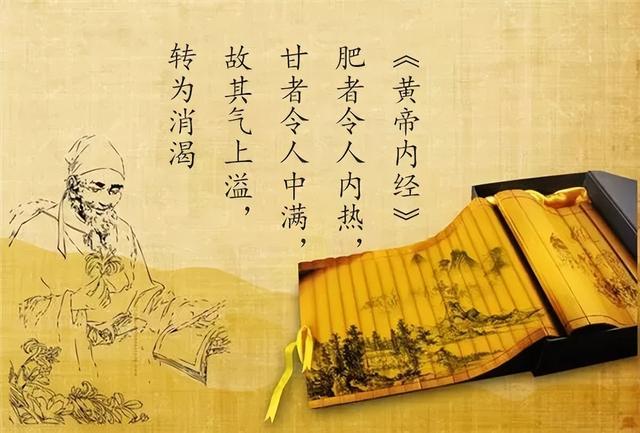 《黄帝内经》
肥者令人内热，
甘者令人中满，
故其气上溢，
转为消渴